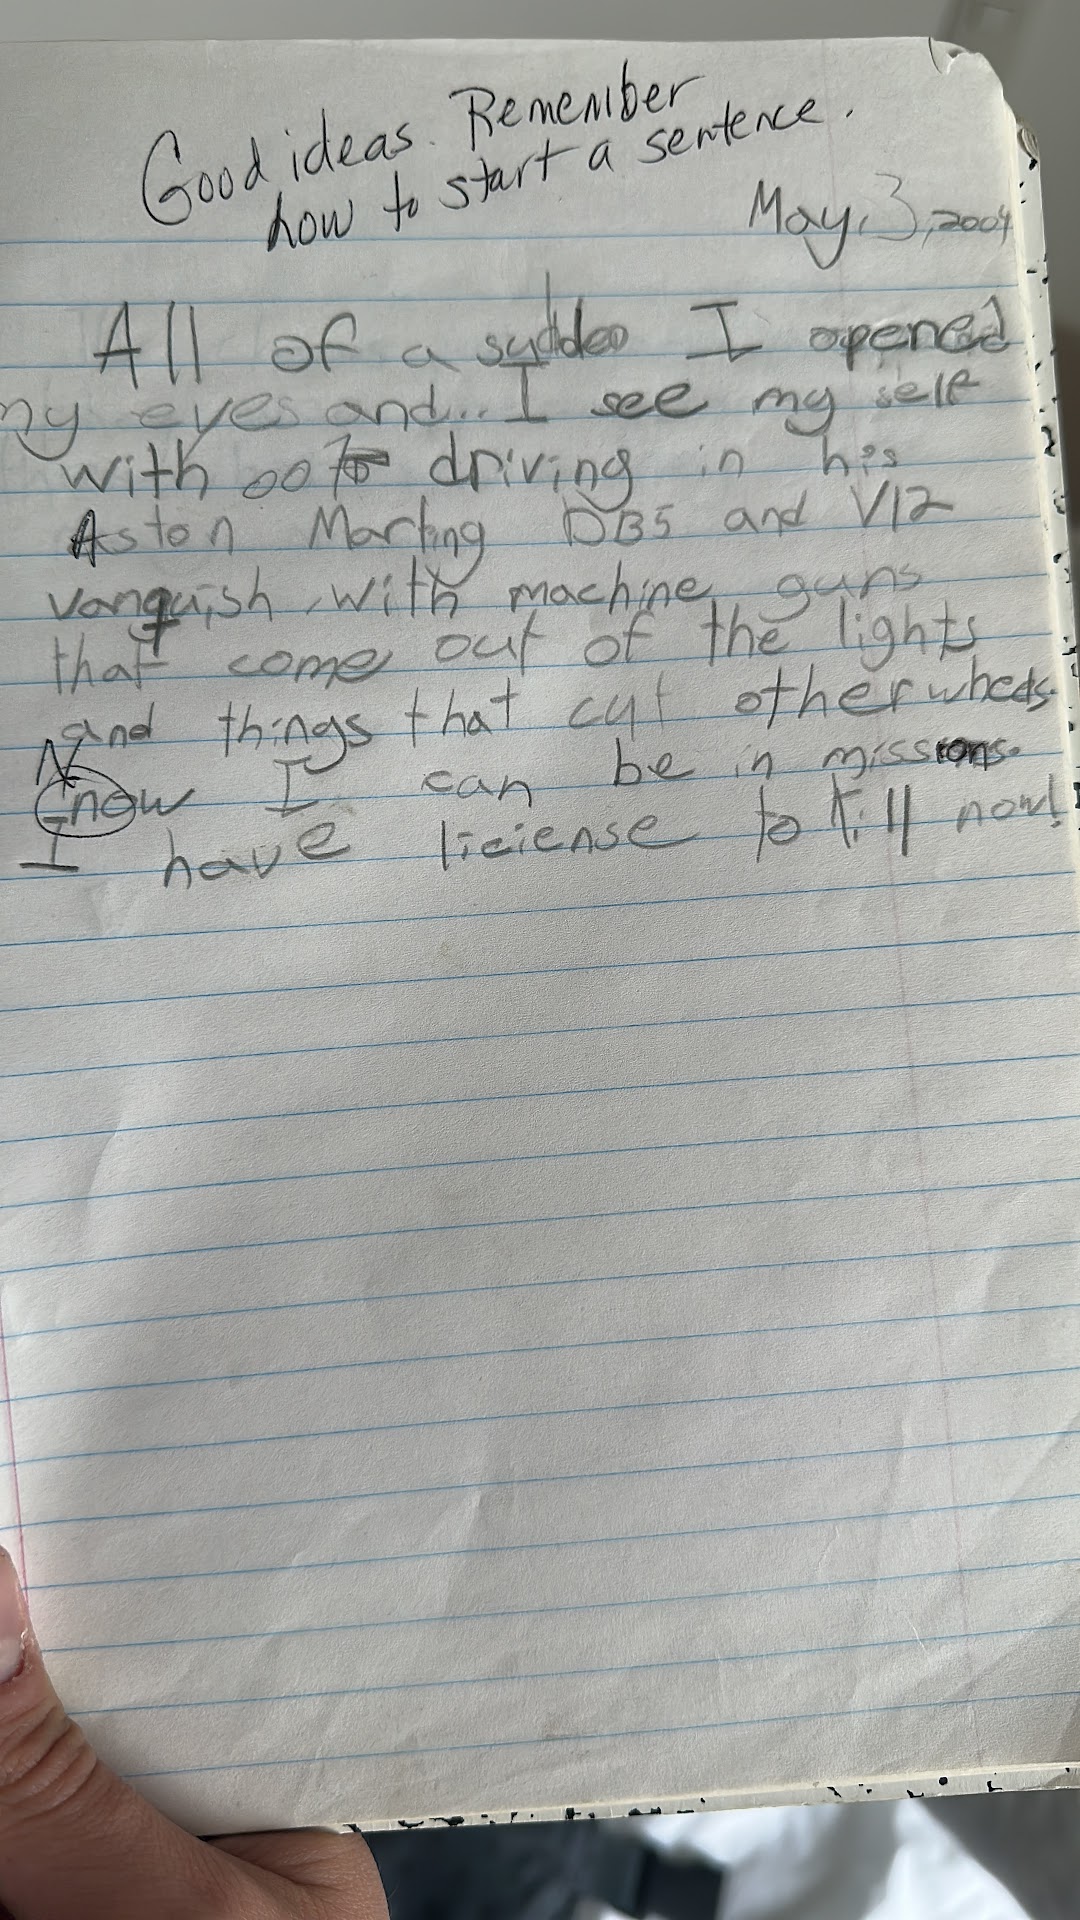 Good ideas. Remember
how to start a sentence.
May, 3, 2004
All of a sudden I opened
my eyes and... I see my self
with 007 driving in his
Aston Marting DB5 and V12
vanquish, with machine guns
that come out of the lights
and things that cut other wheels.
N
now I can be in missions.
I have liciense to kill now!